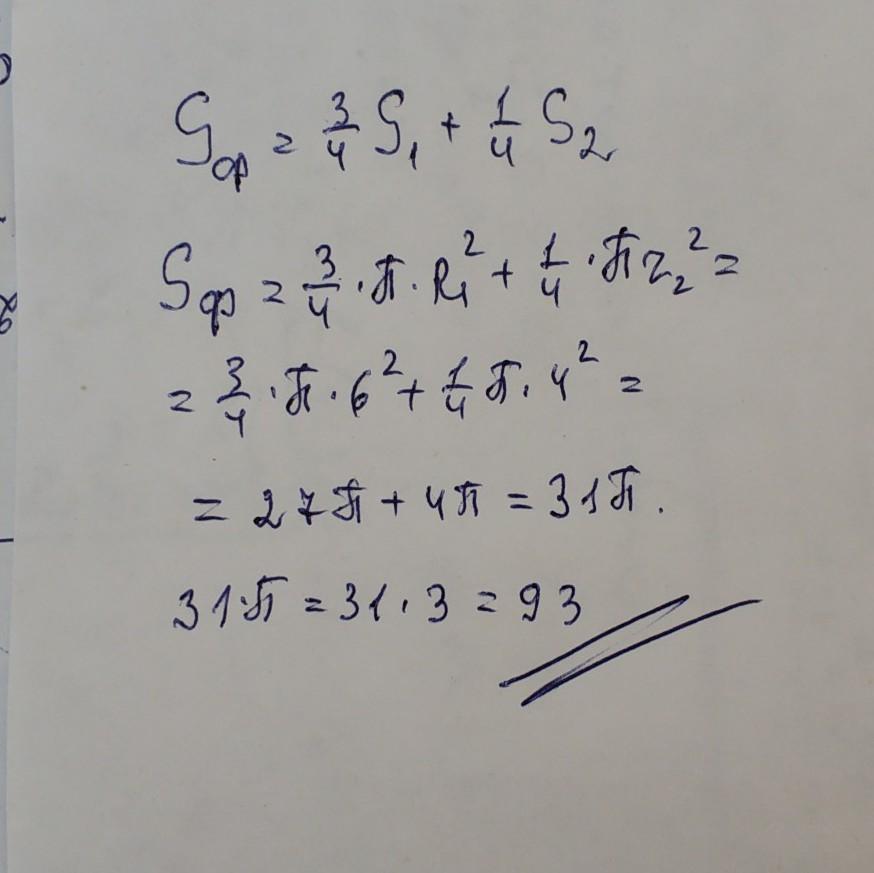 Sф = 3/4 S₁ + 1/4 S₂
Sф = 3/4 · π · R₁² + 1/4 · π r₂² =
= 3/4 · π · 6² + 1/4 π · 4² =
= 27π + 4π = 31π.
31·π = 31 · 3 = 93